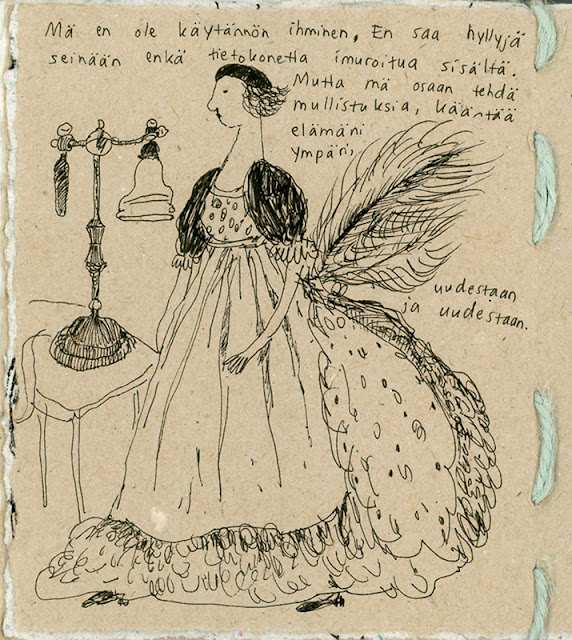 Mä en ole käytännön ihminen. En saa hyllyjä
seinään enkä tietokonetta imuroitua sisältä.
Mutta mä osaan tehdä
mullistuksia, kääntää
elämäni
ympäri,
uudestaan
ja uudestaan.